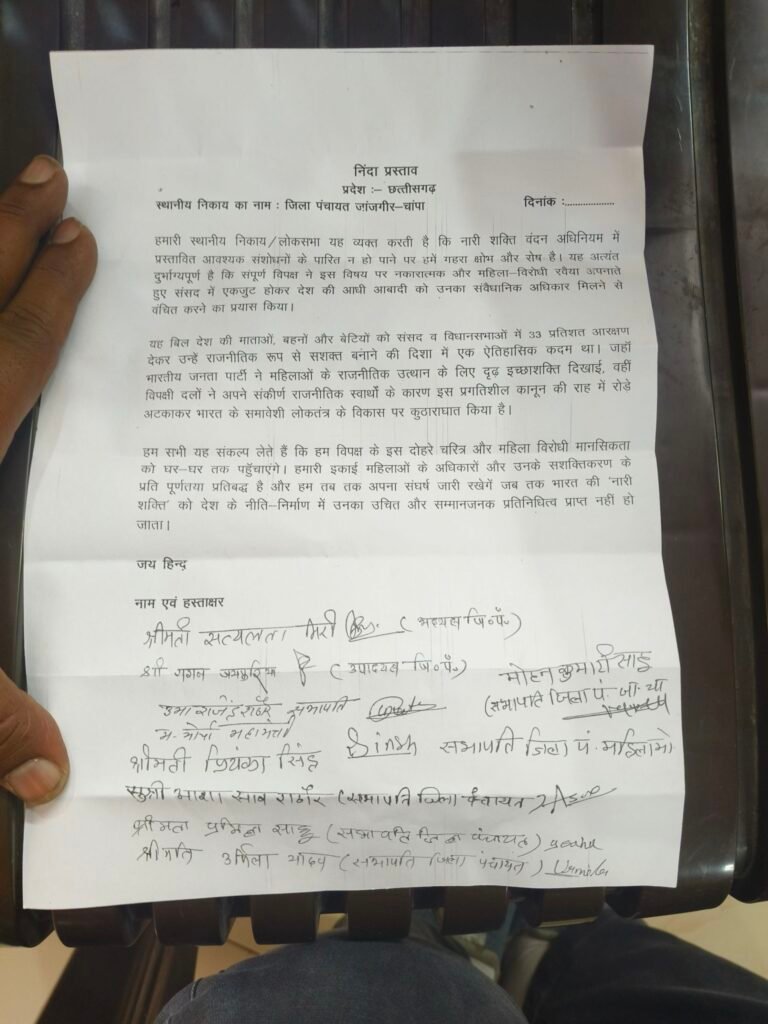 निंदा प्रस्ताव
प्रदेश :– छत्तीसगढ़
स्थानीय निकाय का नाम : जिला पंचायत जांजगीर–चांपा दिनांक :..................
हमारी स्थानीय निकाय/लोकसभा यह व्यक्त करती है कि नारी शक्ति वंदन अधिनियम में
प्रस्तावित आवश्यक संशोधनों के पारित न हो पाने पर हमें गहरा क्षोभ और रोष है। यह अत्यंत
दुर्भाग्यपूर्ण है कि संपूर्ण विपक्ष ने इस विषय पर नकारात्मक और महिला–विरोधी रवैया अपनाते
हुए संसद में एकजुट होकर देश की आधी आबादी को उनका संवैधानिक अधिकार मिलने से
वंचित करने का प्रयास किया।
यह बिल देश की माताओं, बहनों और बेटियों को संसद व विधानसभाओं में 33 प्रतिशत आरक्षण
देकर उन्हें राजनीतिक रूप से सशक्त बनाने की दिशा में एक ऐतिहासिक कदम था। जहाँ
भारतीय जनता पार्टी ने महिलाओं के राजनीतिक उत्थान के लिए दृढ़ इच्छाशक्ति दिखाई, वहीं
विपक्षी दलों ने अपने संकीर्ण राजनीतिक स्वार्थों के कारण इस प्रगतिशील कानून की राह में रोड़े
अटकाकर भारत के समावेशी लोकतंत्र के विकास पर कुठाराघात किया है।
हम सभी यह संकल्प लेते हैं कि हम विपक्ष के इस दोहरे चरित्र और महिला विरोधी मानसिकता
को घर–घर तक पहुँचाएंगे। हमारी इकाई महिलाओं के अधिकारों और उनके सशक्तिकरण के
प्रति पूर्णतया प्रतिबद्ध है और हम तब तक अपना संघर्ष जारी रखेगें जब तक भारत की 'नारी
शक्ति' को देश के नीति–निर्माण में उनका उचित और सम्मानजनक प्रतिनिधित्व प्राप्त नहीं हो
जाता।
जय हिन्द
नाम एवं हस्ताक्षर
श्रीमती सत्यलता मिरी (अध्यक्ष जि॰पं॰)
श्री गगन जयपुरिया (उपाध्यक्ष जि॰पं॰)
मोहन कुमारी साहू
(सभापति जिला पं. जां. चां
उमा राजेंद्र राठौर सभापति
म. मोर्चा महामंत्री
श्रीमती प्रियंका सिंह Singh सभापति जिला पं. महिला मो
सुश्री आशा साव राठौर (सभापति जिला पंचायत
श्रीमती प्रमिला साहू (सभापति जिला पंचायत)
श्रीमति उर्मिला यादव (सभापति जिला पंचायत) Urmila